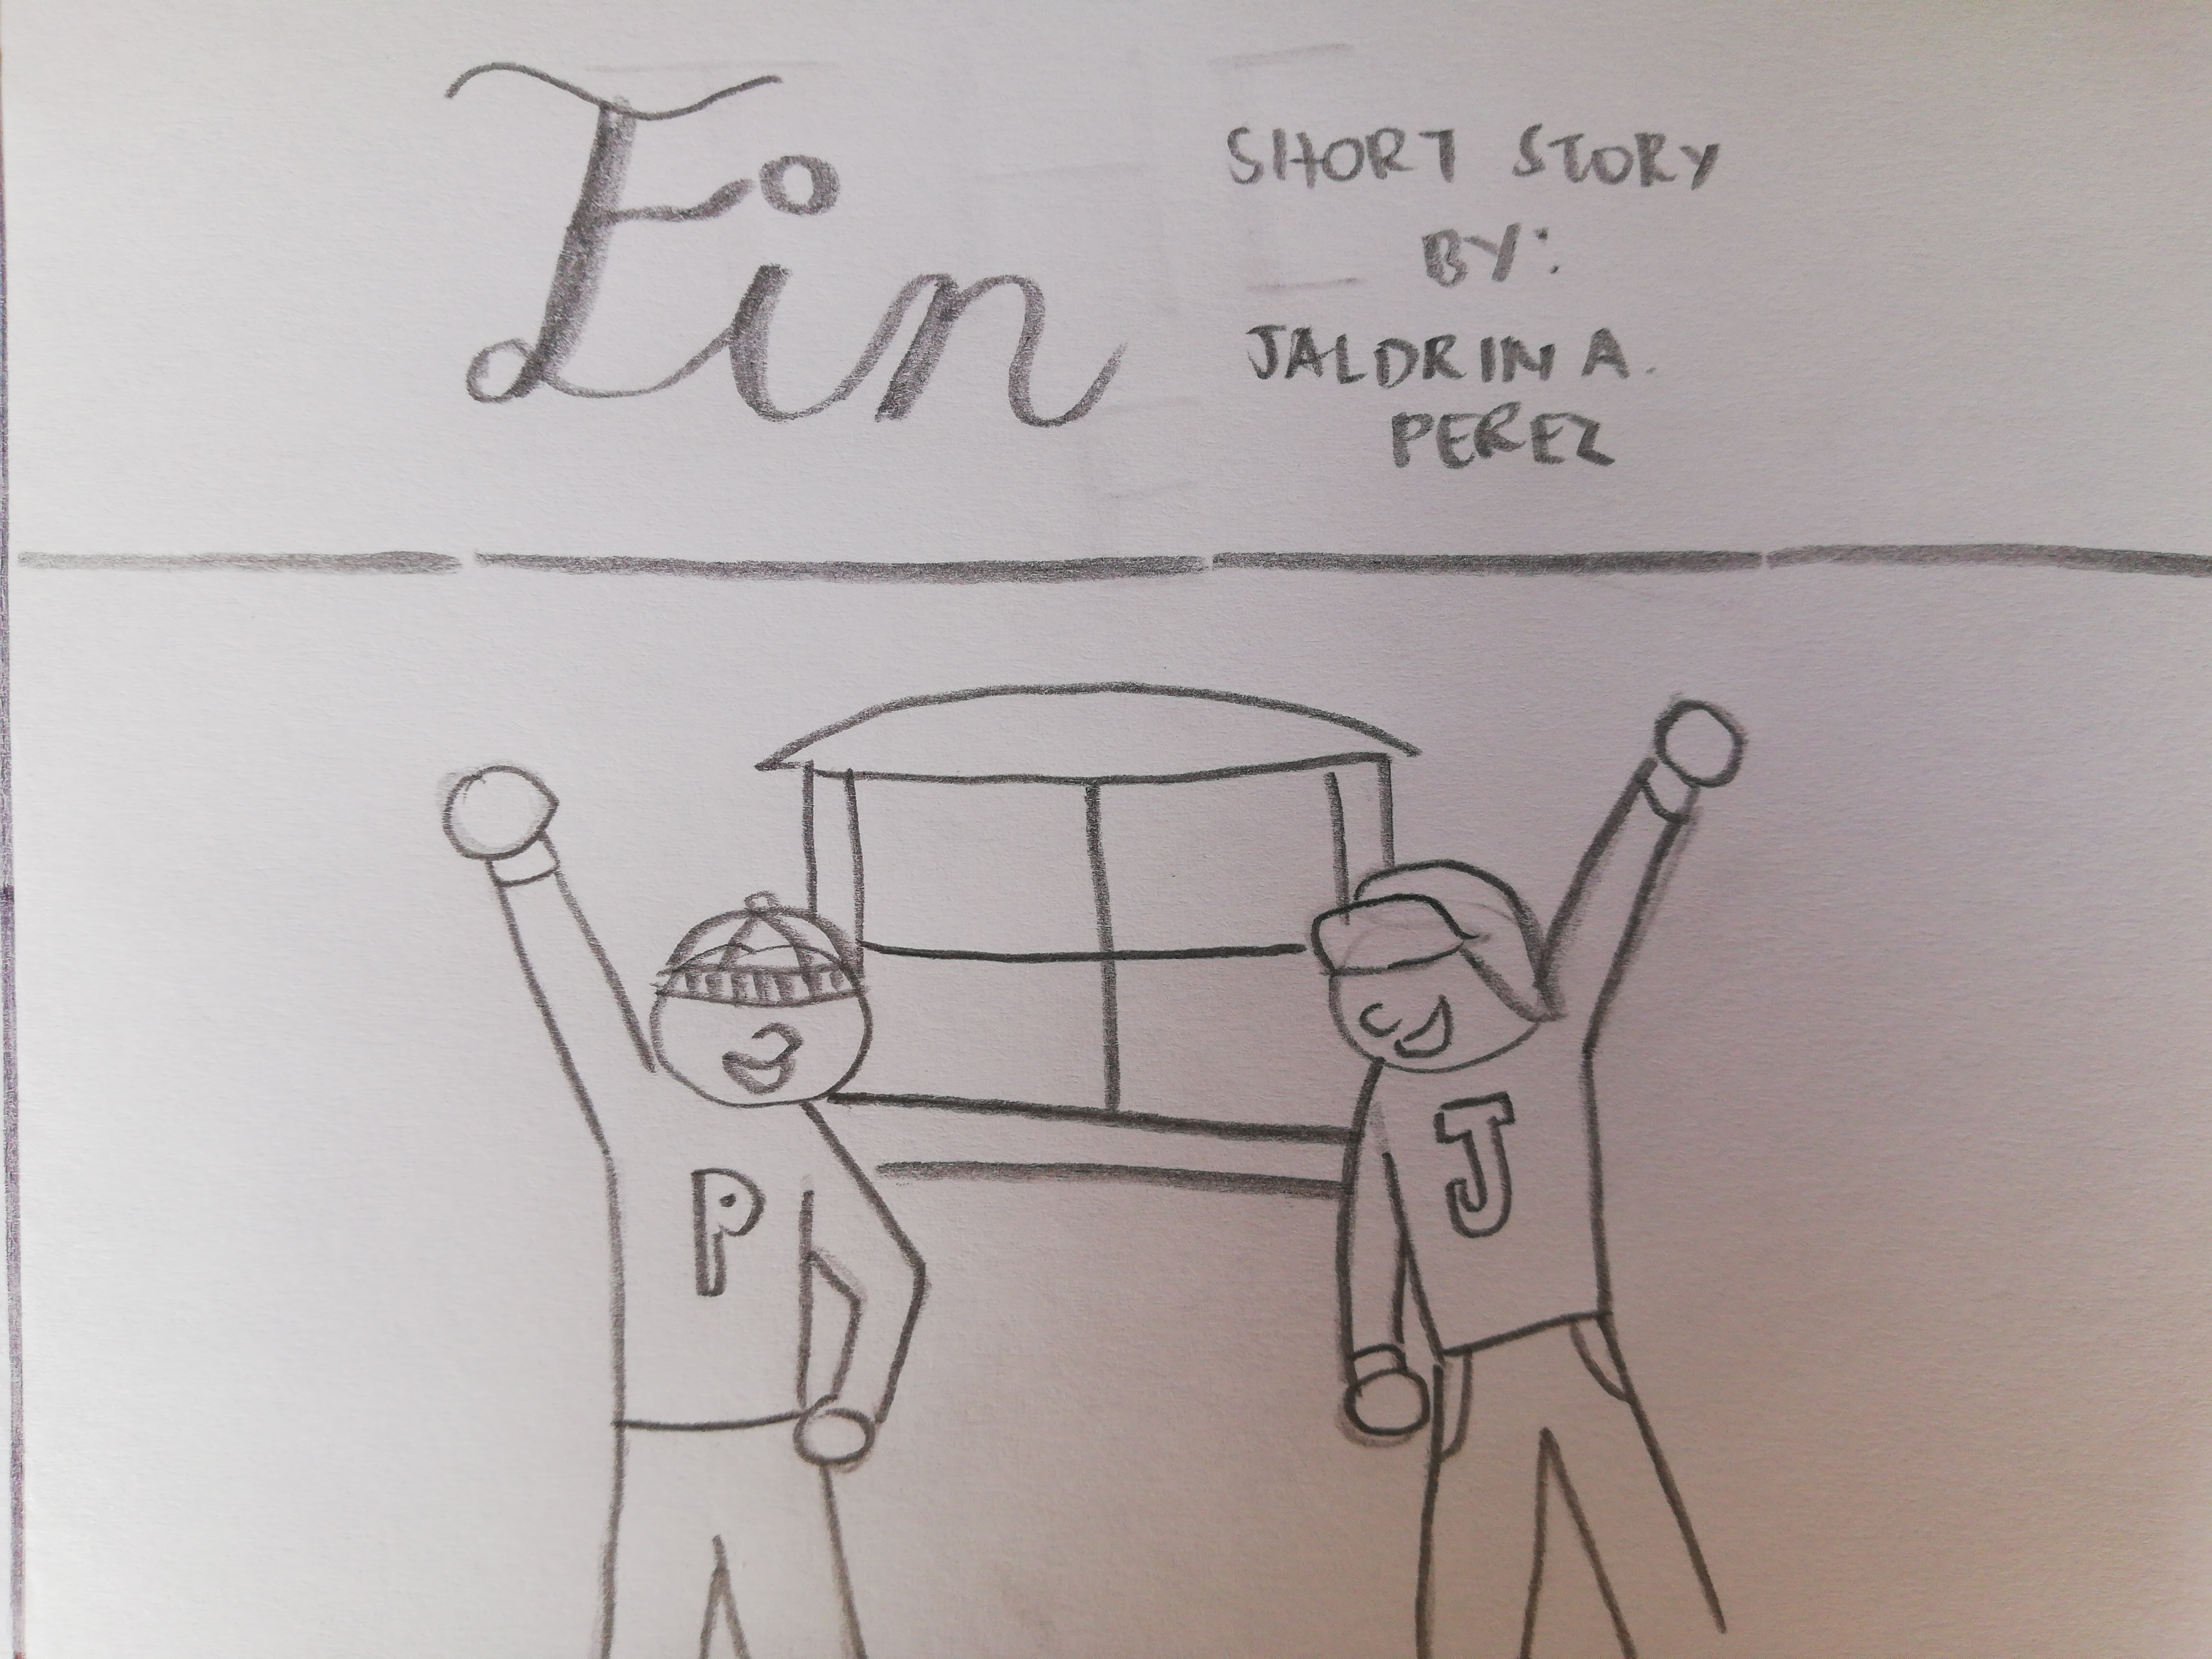 Fin
SHORT STORY
BY:
JALDRIN A.
PEREZ
P
J